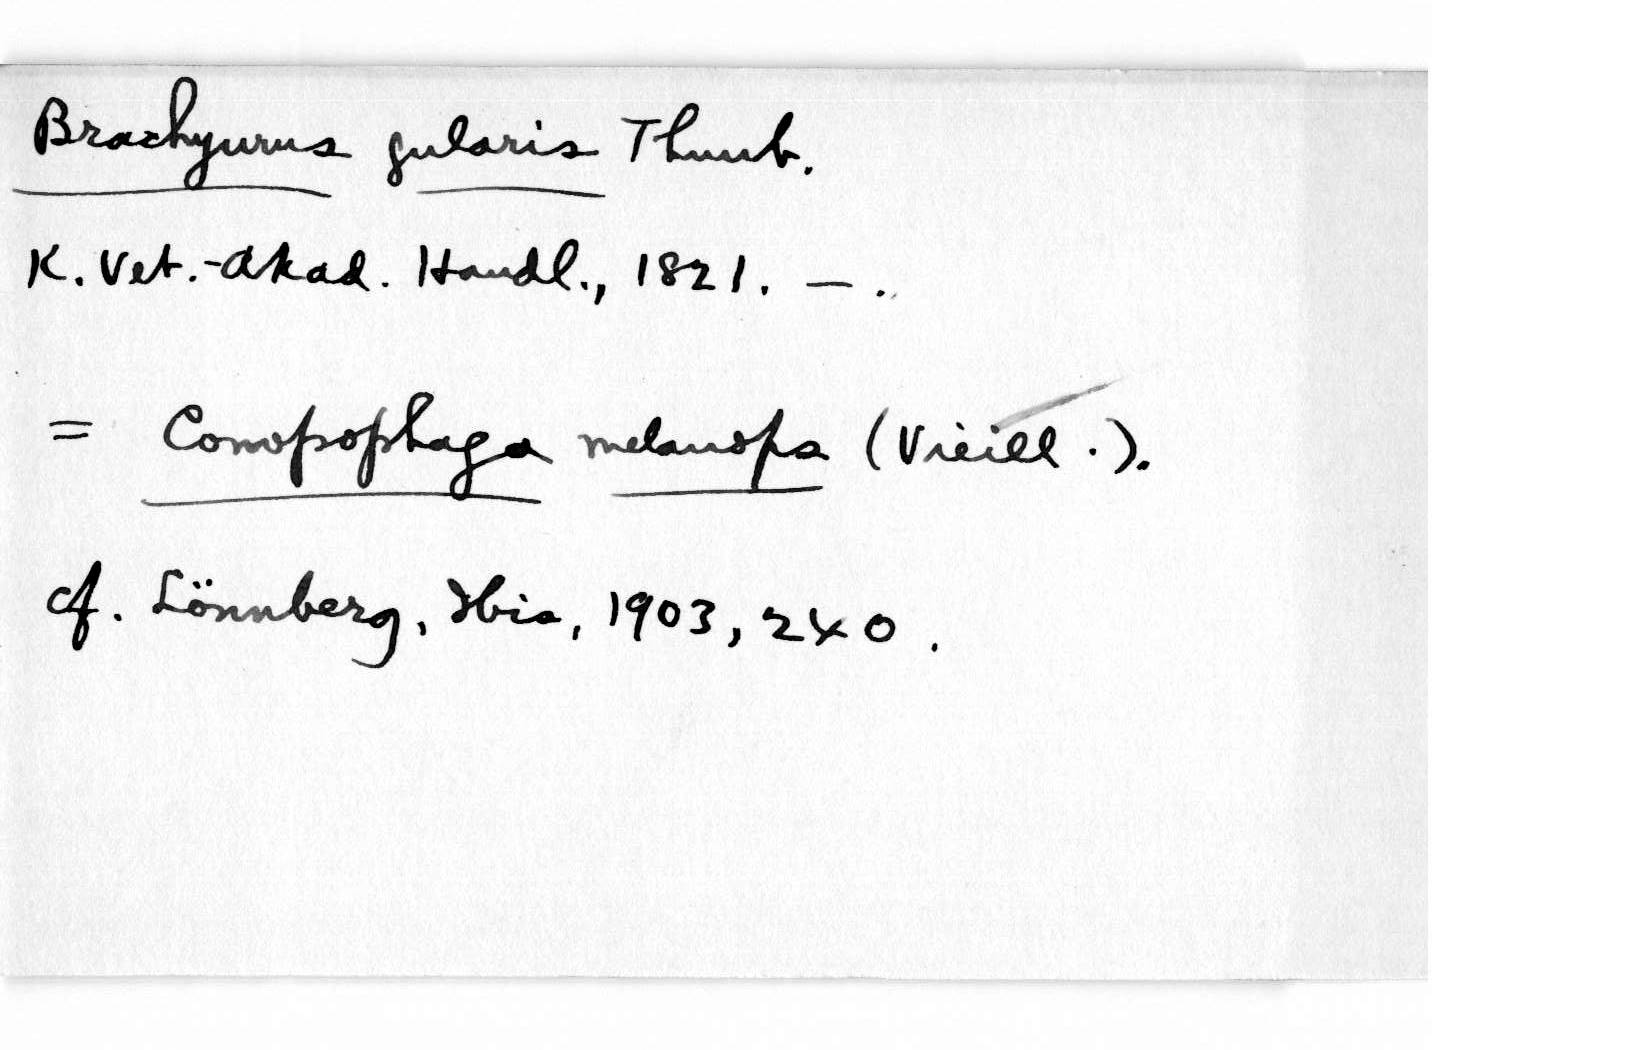 Brachyurus gularis Thunb.
K. Vet.-Akad. Handl., 1821. — .
= Conopophaga melanops (Vieill.).
cf. Lönnberg, Ibis, 1903, 240.